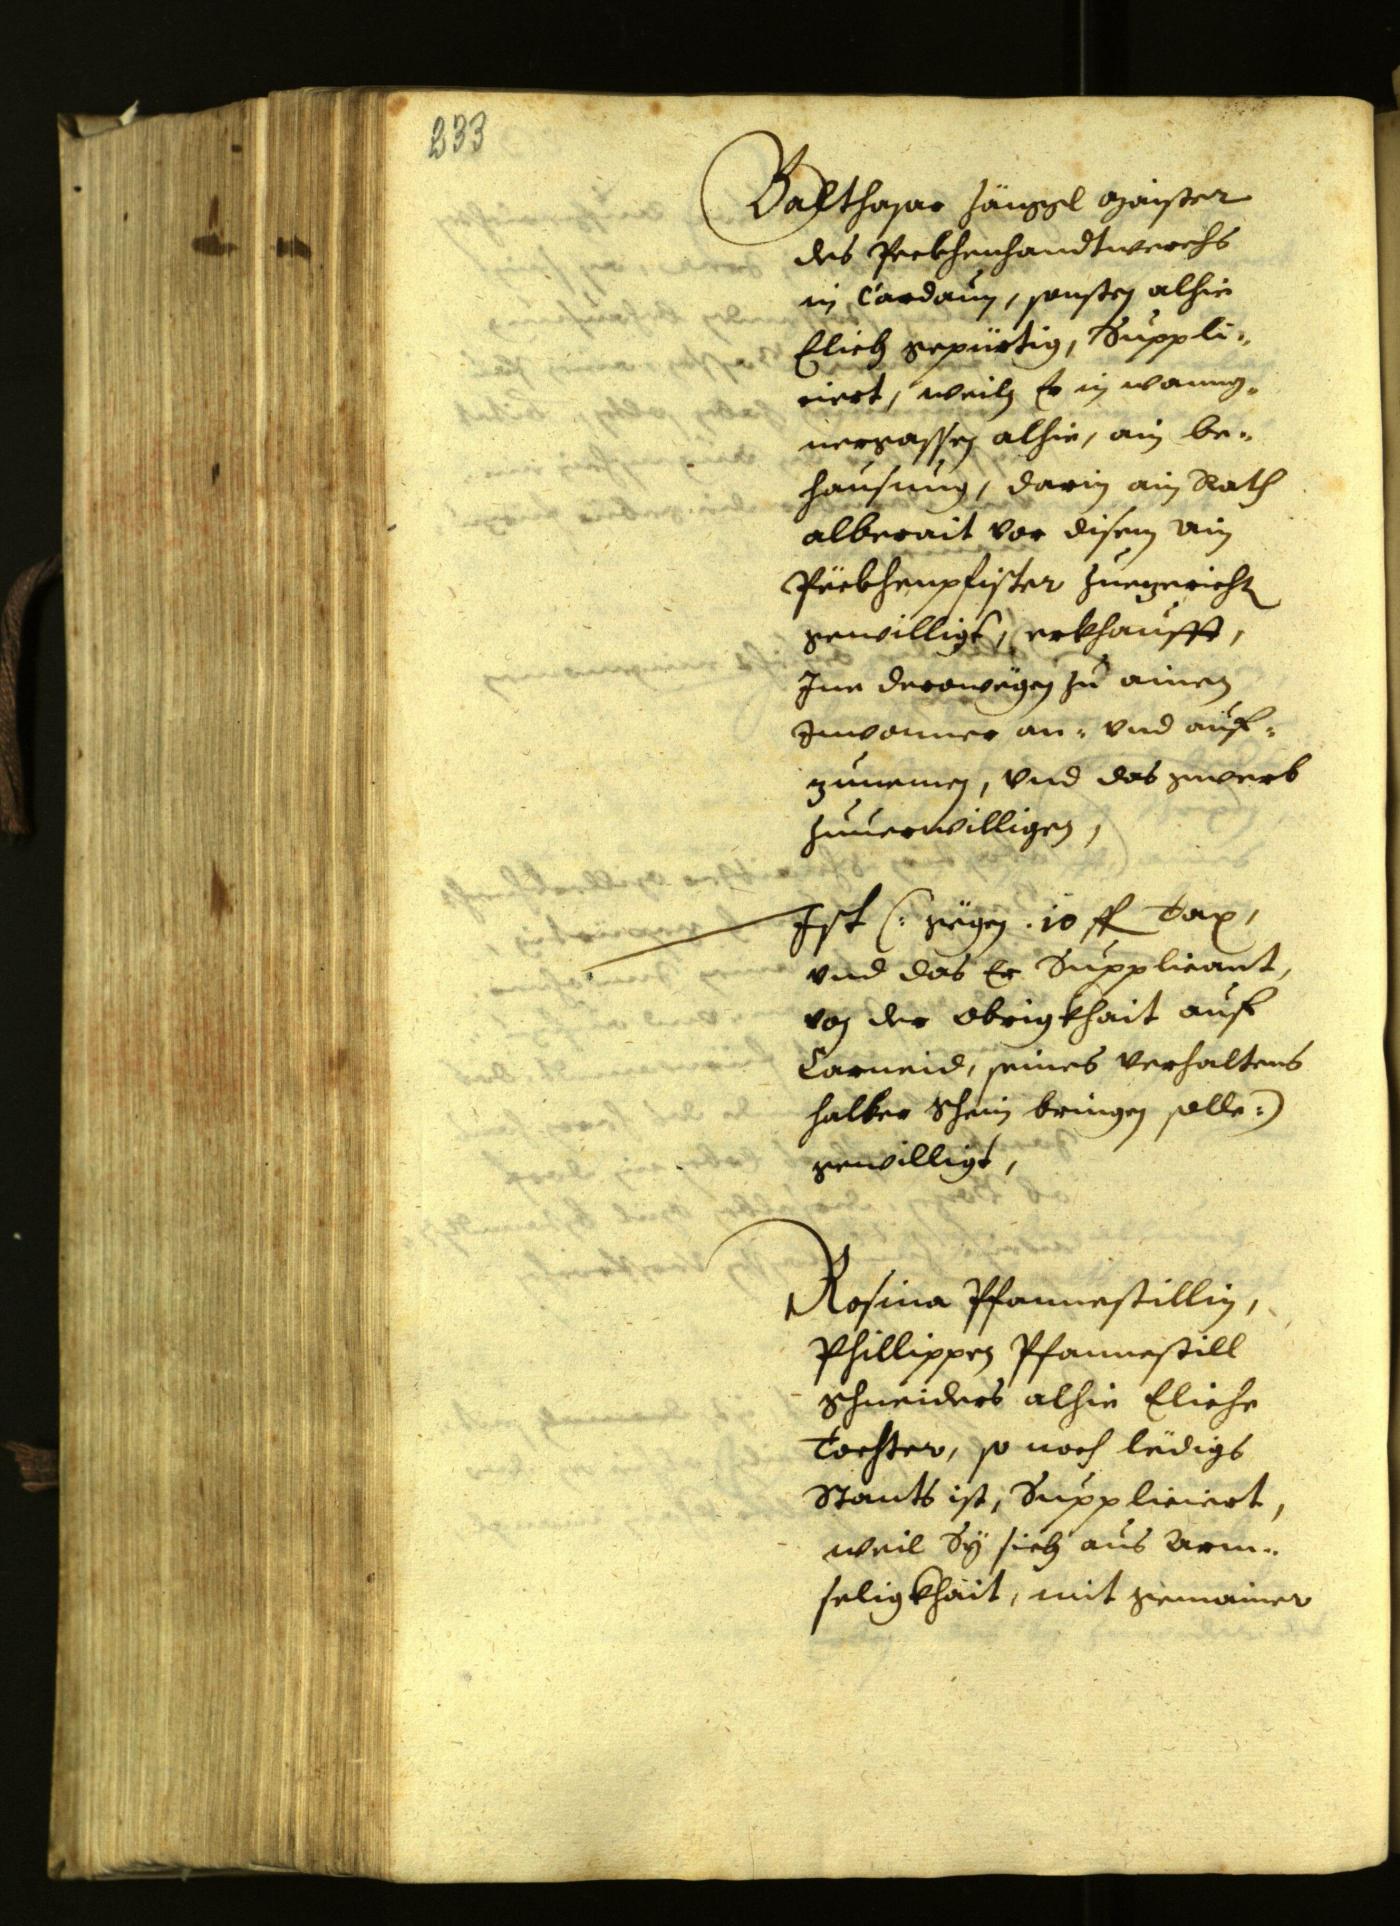 233
Balthasar Hänggl Maister
des Peckhenhandtwerchs
in Cardaun, sonsten alhie
Elich gepürtig, Suppli-,
ciert, weiln Er in wanng-,
nergassen alhie, ain be-,
hausung, darin ain Rath
alberait vor disem ain
Peckhenpfister zuegericht
gewilligt, erkhaufft,
Ine derowegen zu ainen
Inwoner an- und auf-,
zunemen, und das gwerb
zuuerwilligen,
Ist (: gegen . 10 fl Tax,
und das Er Supplicant,
von der Obrigkhait auf
Carneid, seines verhaltens
halber Schein bringen solle :)
gewilligt,
Rosina Pfannestillin,
Phillippen Pfannestill
Schneiders alhie Eliche
Tochter, so noch ledigs
Stants ist, Suppliciert,
weil Sÿ sich aus Arm-,
seligkhait, mit gemainer